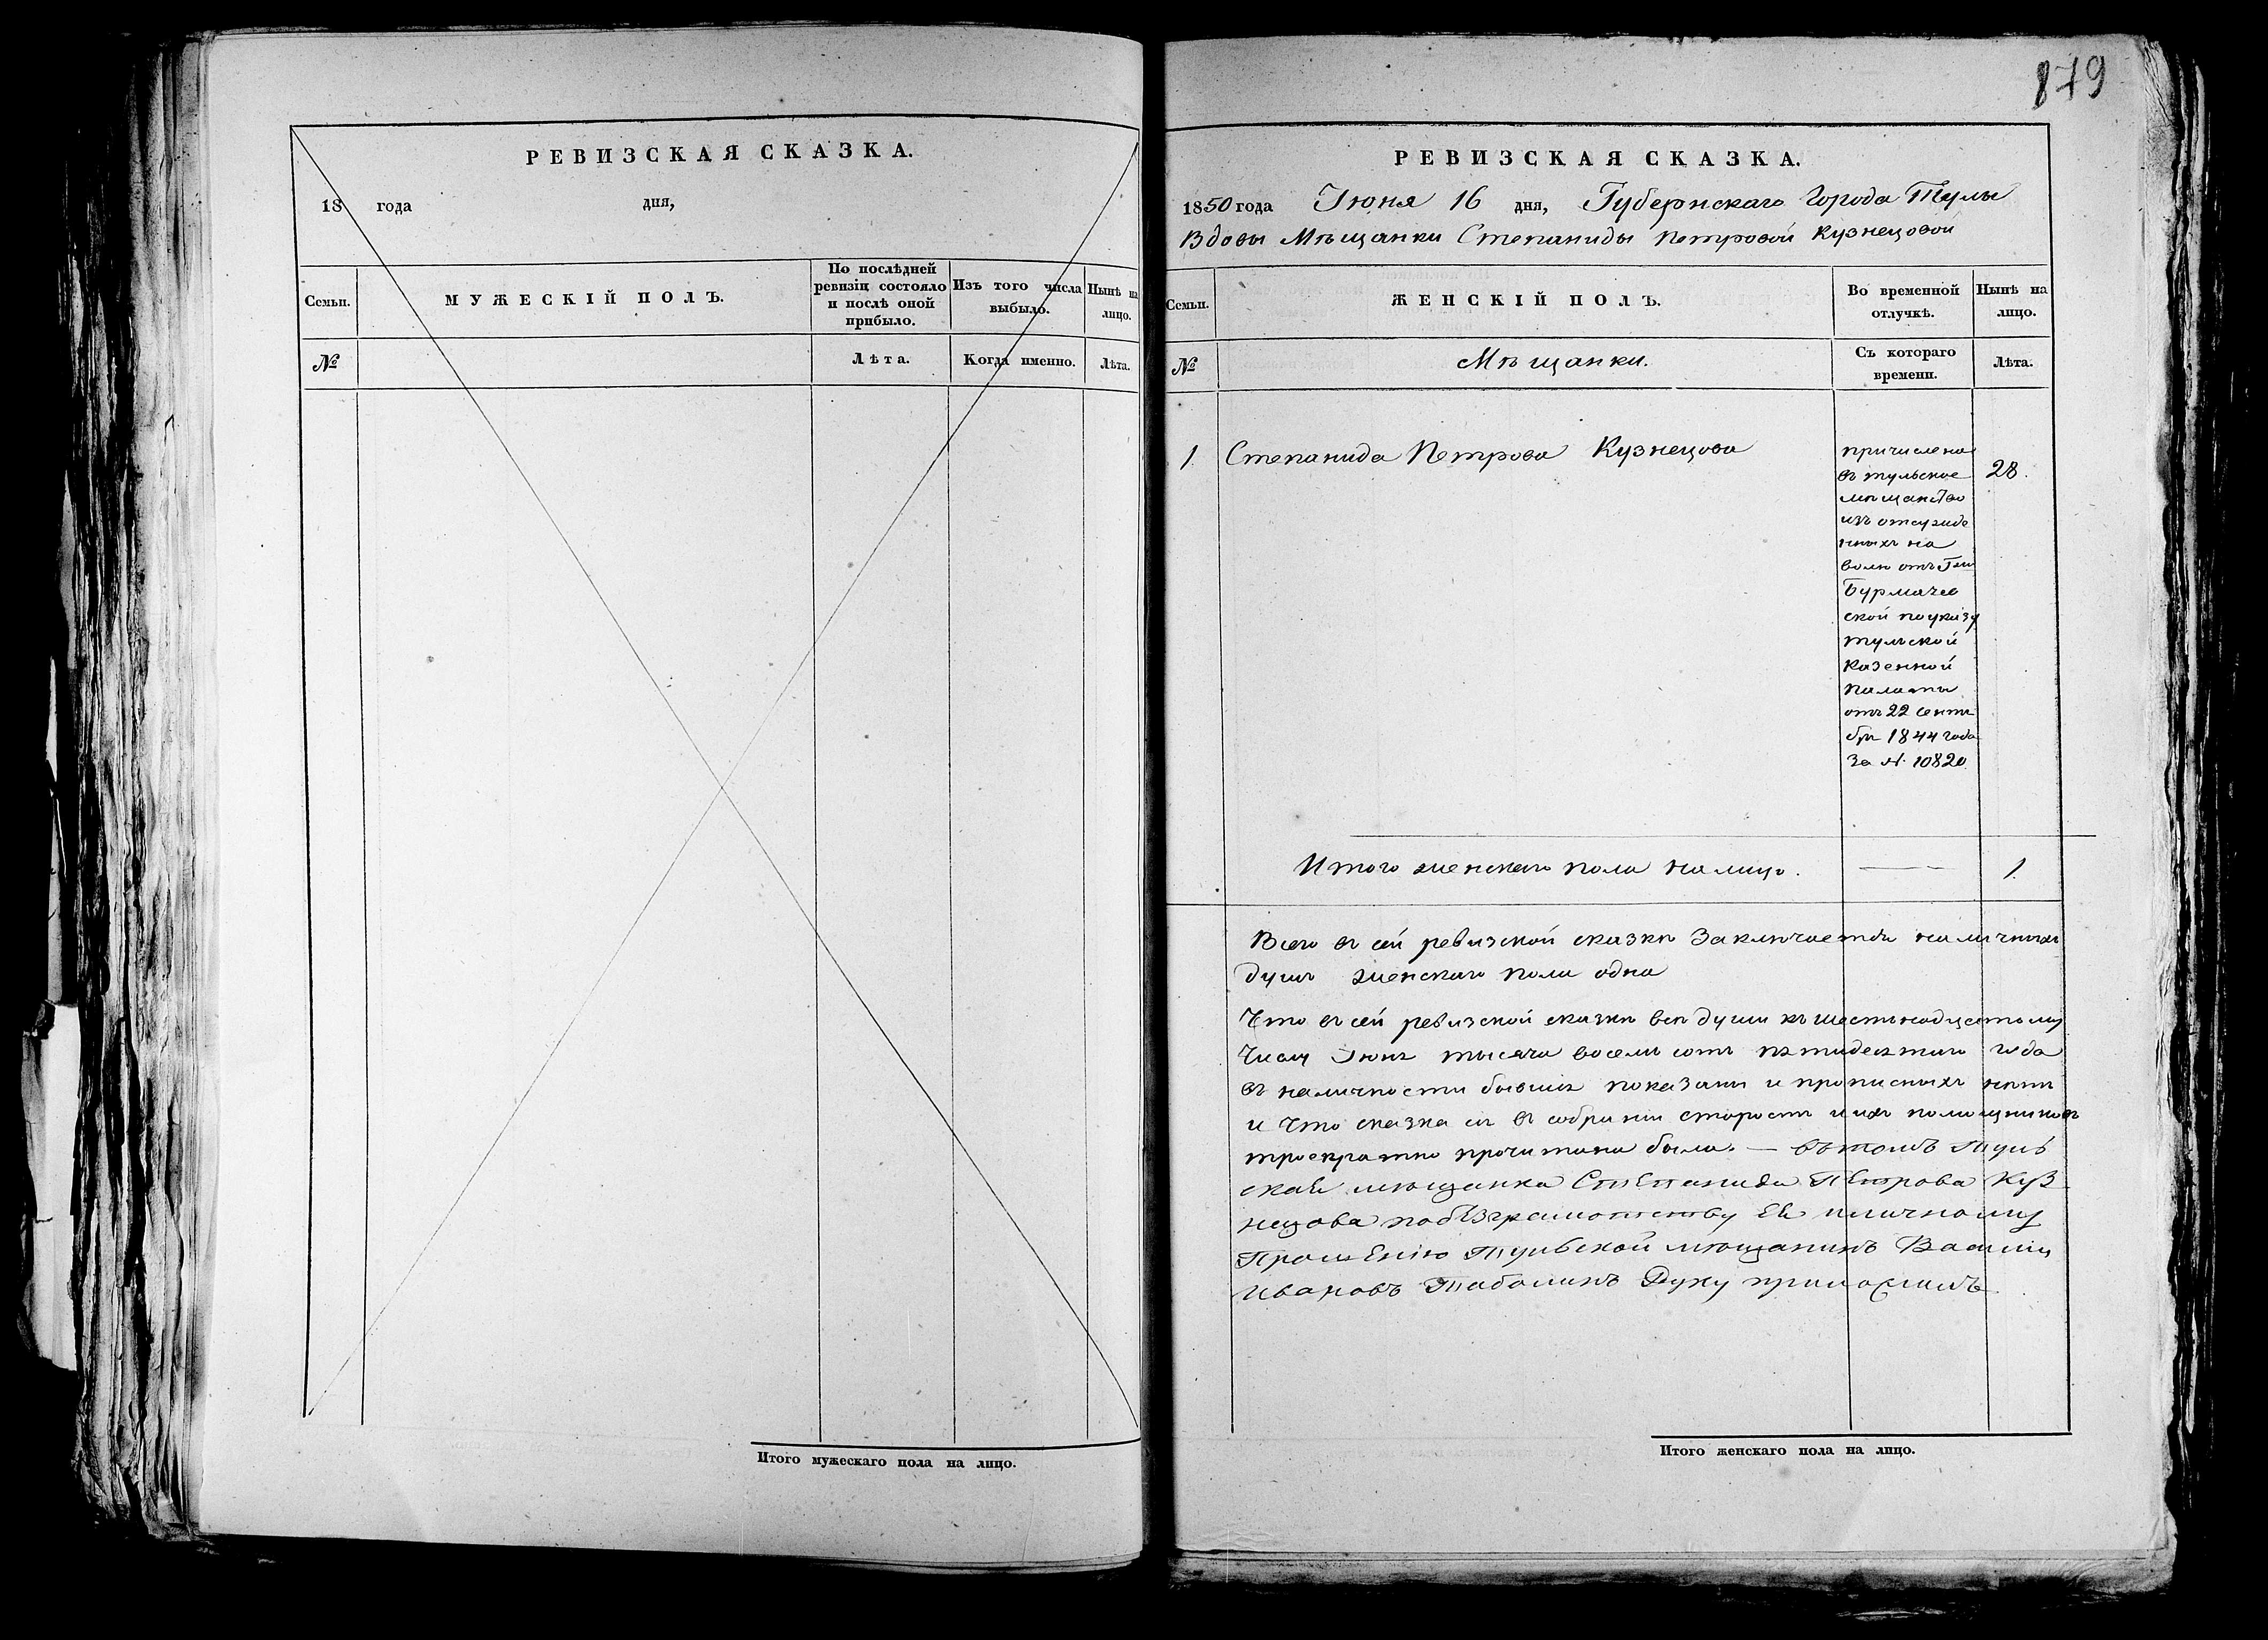 879
РЕВИЗСКАЯ СКАЗКА.
18 года дня,
Семьи.
МУЖЕСКІЙ ПОЛЪ.
По послѣдней
ревизіи состояло
и послѣ оной
прибыло.
Изъ того числа
выбыло.
Нынѣ на
лицо.
№
Лѣта.
Когда именно.
Лѣта.
Итого мужескаго пола на лицо.
РЕВИЗСКАЯ СКАЗКА.
1850 года Іюня 16 дня, Губернскаго Города Тулы
Вдовы Мѣщанки Степаниды Петровой Кузнецовой
Семьи.
ЖЕНСКІЙ ПОЛЪ.
Во временной
отлучкѣ.
Нынѣ на
лицо.
№
Мѣщанки.
Съ котораго
времени.
Лѣта.
1 Степанида Петрова Кузнецова
28.
причислена
въ тульское
мѣщанство
изъ отсужде
нныхъ на
волю отъ Гжи
Бурмачев
ской по указу
тульской
Казенной
Палаты
отъ 22 сентя
бря 1844 года
За N. 10820
Итого женскаго пола на лицо. — 1.
Всего въ сей ревизской сказкѣ Заключается наличныхъ
душъ женскаго пола одна
Что въ сей ревизской сказкѣ всѣ души къ шестьнадцатому
Числу Іюня тысяча восемь сотъ пятидесятаго года
въ наличности бывшія показаны и прописныхъ нѣтъ
и Что сказка сія въ собраніи старостъ и ихъ помощниковъ
троекратно прочитана была. — въ томъ Туль
ская мѣщанка Степанида Петрова Куз
нецова по безграмотству Ея и личному
Прошенію Тульской мѣщанинъ Василий
Ивановъ Таболинъ Руку приложилъ
Итого женскаго пола на лицо.